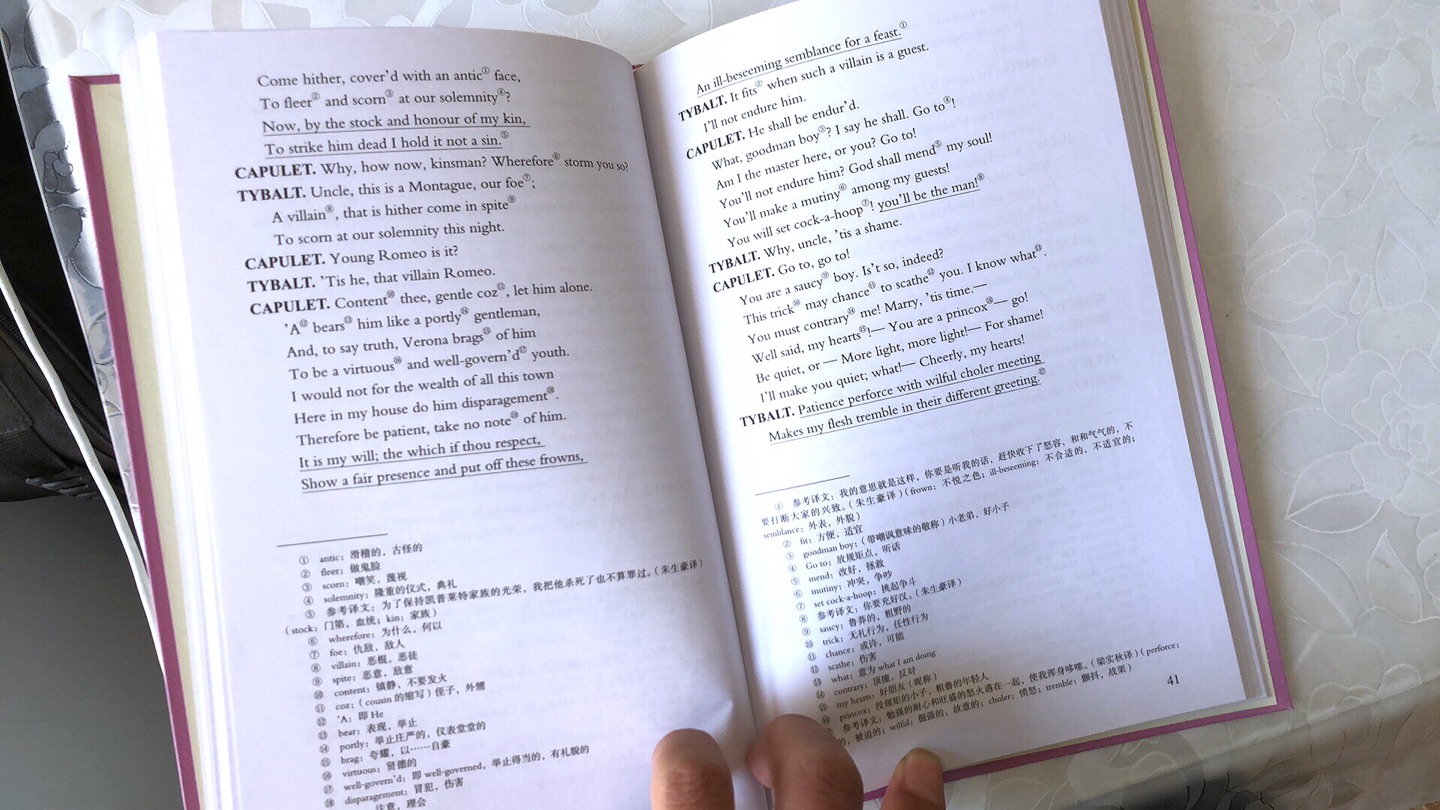 Come hither, cover'd with an antic① face,
To fleer② and scorn③ at our solemnity④?
Now, by the stock and honour of my kin,
To strike him dead I hold it not a sin.⑤
CAPULET. Why, how now, kinsman? Wherefore⑥ storm you so?
TYBALT. Uncle, this is a Montague, our foe⑦;
A villain⑧, that is hither come in spite⑨
To scorn at our solemnity this night.
CAPULET. Young Romeo is it?
TYBALT. 'Tis he, that villain Romeo.
CAPULET. Content⑩ thee, gentle coz⑪, let him alone.
'A⑫ bears⑬ him like a portly⑭ gentleman,
And, to say truth, Verona brags⑮ of him
To be a virtuous⑯ and well-govern'd⑰ youth.
I would not for the wealth of all this town
Here in my house do him disparagement⑱.
Therefore be patient, take no note⑲ of him.
It is my will; the which if thou respect,
Show a fair presence and put off these frowns,
① antic: 滑稽的，古怪的
② fleer: 做鬼脸
③ scorn: 嘲笑，蔑视
④ solemnity: 隆重的仪式，典礼
⑤ 参考译文：为了保持凯普莱特家族的光荣，我把他杀死了也不算罪过。(朱生豪译)
(stock: 门第，血统；kin: 家族)
⑥ wherefore: 为什么，何以
⑦ foe: 仇敌，敌人
⑧ villain: 恶棍，恶徒
⑨ spite: 恶意，敌意
⑩ content: 镇静，不要发火
⑪ coz: (cousin 的缩写) 侄子，外甥
⑫ 'A: 即 He
⑬ bear: 表现，举止
⑭ portly: 举止庄严的，仪表堂堂的
⑮ brag: 夸耀，以……自豪
⑯ virtuous: 贤德的
⑰ well-govern'd: 即 well-governed，举止得当的，有礼貌的
⑱ disparagement: 冒犯，伤害
注意，理会
An ill-beseeming semblance for a feast.①
TYBALT. It fits② when such a villain is a guest.
I'll not endure him.
CAPULET. He shall be endur'd.
What, goodman boy③? I say he shall. Go to④!
Am I the master here, or you? Go to!
You'll not endure him? God shall mend⑤ my soul!
You'll make a mutiny⑥ among my guests!
You will set cock-a-hoop⑦! you'll be the man!⑧
TYBALT. Why, uncle, 'tis a shame.
CAPULET. Go to, go to!
You are a saucy⑨ boy. Is't so, indeed?
This trick⑩ may chance⑪ to scathe⑫ you. I know what⑬.
You must contrary⑭ me! Marry, 'tis time.—
Well said, my hearts⑮!— You are a princox⑯— go!
Be quiet, or — More light, more light!— For shame!
I'll make you quiet; what!— Cheerly, my hearts!
TYBALT. Patience perforce with wilful choler meeting
Makes my flesh tremble in their different greeting.⑰
① 参考译文：我的意思就是这样，你要是听我的话，赶快收下了怒容，和和气气的，不
要打断大家的兴致。(朱生豪译) (frown: 不悦之色；ill-beseeming: 不合适的，不适宜的；
semblance: 外表，外貌)
② fit: 方便，适宜
③ goodman boy: (带嘲讽意味的敬称) 小老弟，好小子
④ Go to: 放规矩点，听话
⑤ mend: 改好，拯救
⑥ mutiny: 冲突，争吵
⑦ set cock-a-hoop: 挑起争斗
⑧ 参考译文：你要充好汉。(朱生豪译)
⑨ saucy: 鲁莽的，粗野的
⑩ trick: 无礼行为，任性行为
⑪ chance: 或许，可能
⑫ scathe: 伤害
⑬ what: 意为 what I am doing
⑭ contrary: 顶撞，反对
⑮ my hearts: 好朋友 (昵称)
⑯ princox: 没规矩的小子，粗鲁的年轻人
参考译文：勉强的耐心和旺盛的怒火遇在一起，使我浑身哆嗦。(梁实秋译) (perforce:
的，被迫的；wilful: 倔强的，故意的；choler: 愤怒；tremble: 颤抖，战栗)
41